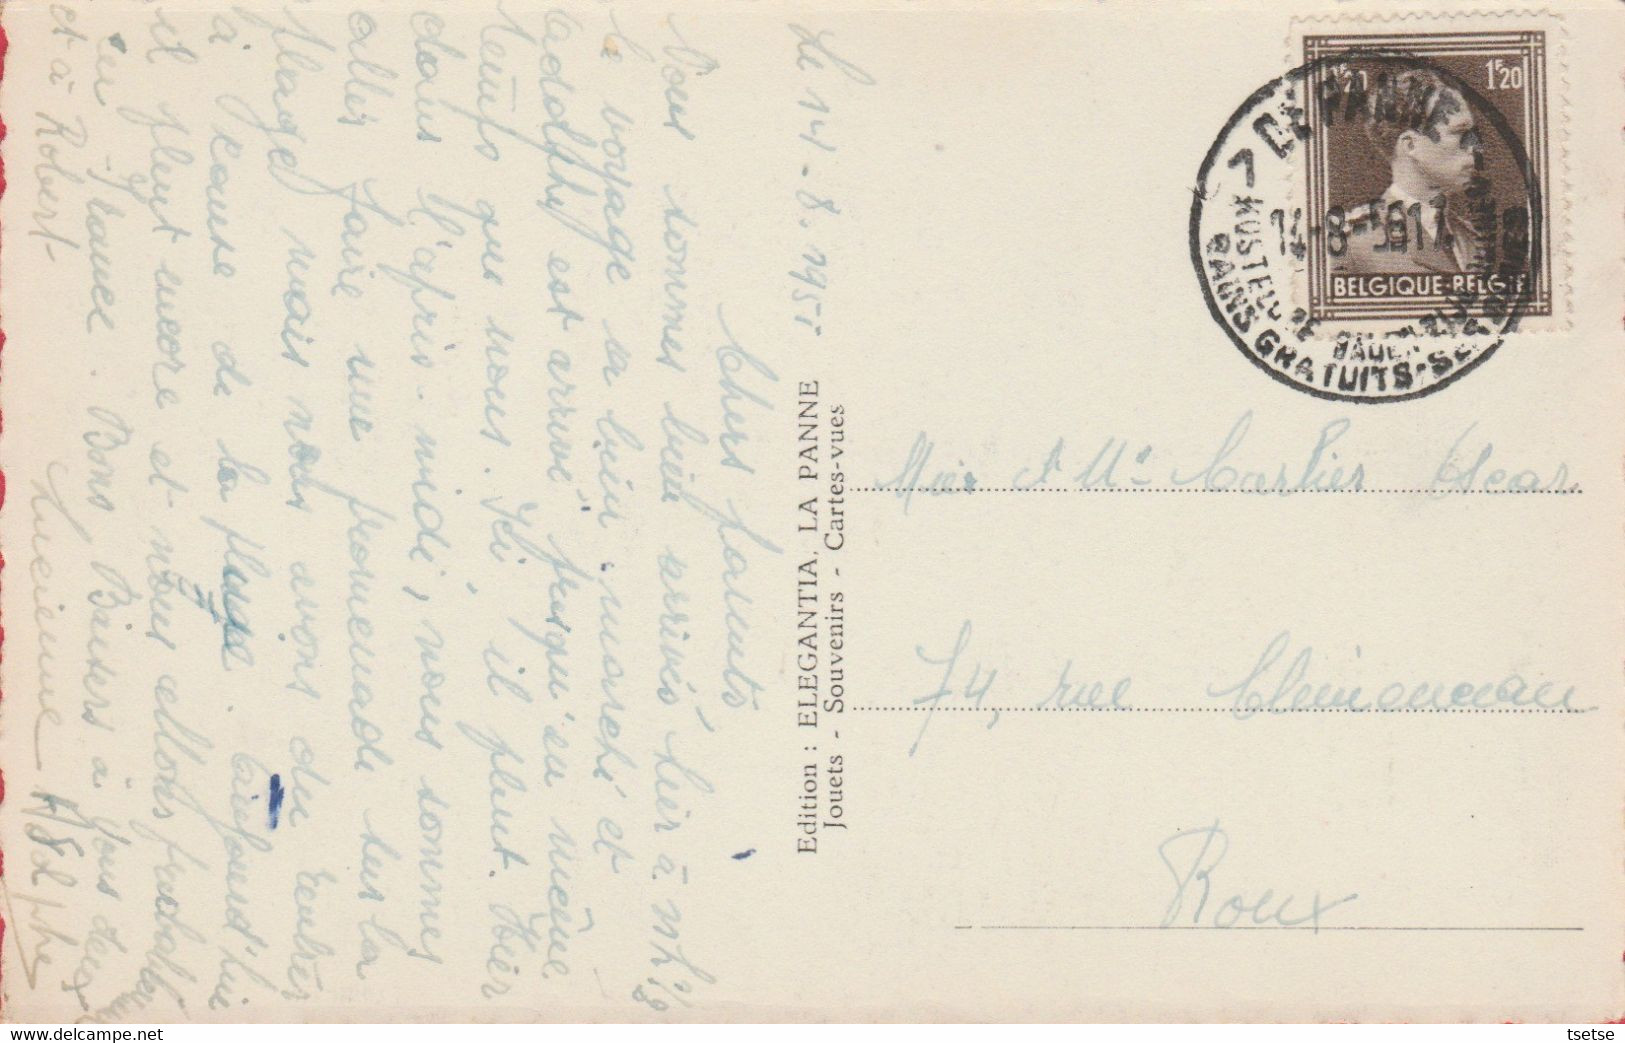 Le 14-8.1955
Chers parents
Nous sommes bien arrivés hier à 2h 1/2
le voyage a bien marché et
Adolphe est arrivé presqu'en même
temps que nous. Ici il pleut. Hier
dans l'après-midi, nous sommes
allés faire une promenade sur la
plage mais nous avons du rentrer
à cause de la pluie. Aujourd'hui
il pleut encore et nous allons
en France. Bons Baisers à vous deux
et à Robert
Lucienne Adolphe
Edition : ELEGANTIA, LA PANNE
Jouets - Souvenirs - Cartes-vues
1F20
1F20
BELGIQUE-BELGIE
7 DE PANNE
14-8-5
KOSTELOZE BADEN
BAINS GRATUITS
Mr et Me Carlier Oscar
74, rue Clémenceau
Roux
tsetse